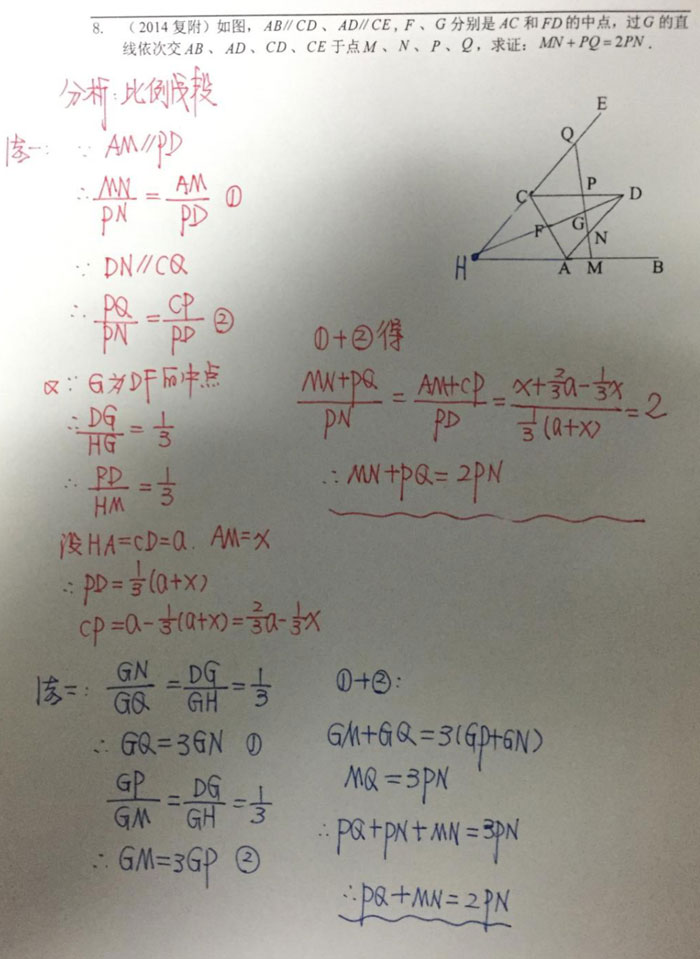 8. （2014 复附）如图，AB//CD、AD//CE，F、G分别是AC和FD的中点，过G的直
线依次交AB、AD、CD、CE于点M、N、P、Q，求证：MN+PQ=2PN．
分析：比例线段
法一： ∵ AM//PD
∴ MN/PN = AM/PD ①
∵ DN//CQ
∴ PQ/PN = CP/PD ②
又∵ G为DF的中点
∴ DG/HG = 1/3
∴ PD/HM = 1/3
设HA=CD=a. AM=x
∴ PD=1/3(a+x)
CP=a-1/3(a+x)=2/3a-1/3x
E
Q
C
P
D
F
G
N
H
A
M
B
①+②得
MN+PQ/PN = AM+CP/PD = x+2/3a-1/3x/1/3(a+x) = 2
∴ MN+PQ=2PN
法二： GN/GQ = DG/GH = 1/3
∴ GQ=3GN ①
GP/GM = DG/GH = 1/3
∴ GM=3GP ②
①+②:
GM+GQ=3(GP+GN)
MQ=3PN
∴ PQ+PN+MN=3PN
∴ PQ+MN=2PN